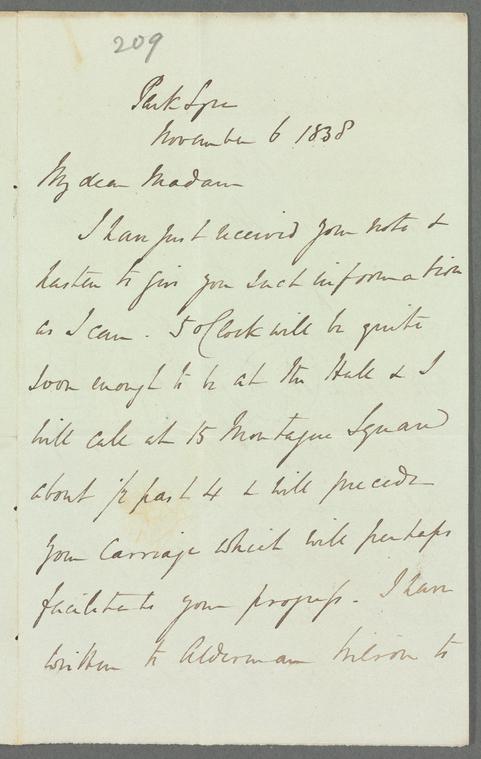 209
Park Sqre
November 6 1838
My dear Madam
I have just received your note &
hasten to give you such information
as I can. 5 o'Clock will be quite
soon enough to be at the Hall & I
will call at 15 Montague Square
about 1/2 past 4 & will precede
your Carriage which will perhaps
facilitate your progress. I have
written to Alderman Wilson to